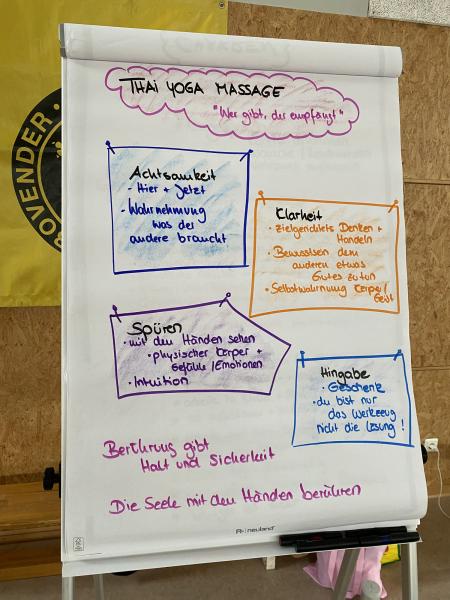 THAI YOGA MASSAGE
"Wer gibt, der empfängt"
Achtsamkeit
- Hier + Jetzt
- Wahrnehmung
was der
andere braucht
Klarheit
• zielgerichtetes Denken +
Handeln
• Bewusstsen dem
anderen etwas
Gutes zu tun
• Selbstwahrnung Körper/
Geist
Spüren
• mit den Händen sehen
• physischer Körper +
Gefühle / Emotionen
• Intuition
Hingabe
• Geschenk
• du bist nur
das Werkzeug
nicht die Lösung !
Berührung gibt
Halt und Sicherheit
Die Seele mit den Händen berühren
neuland
ROVENDER